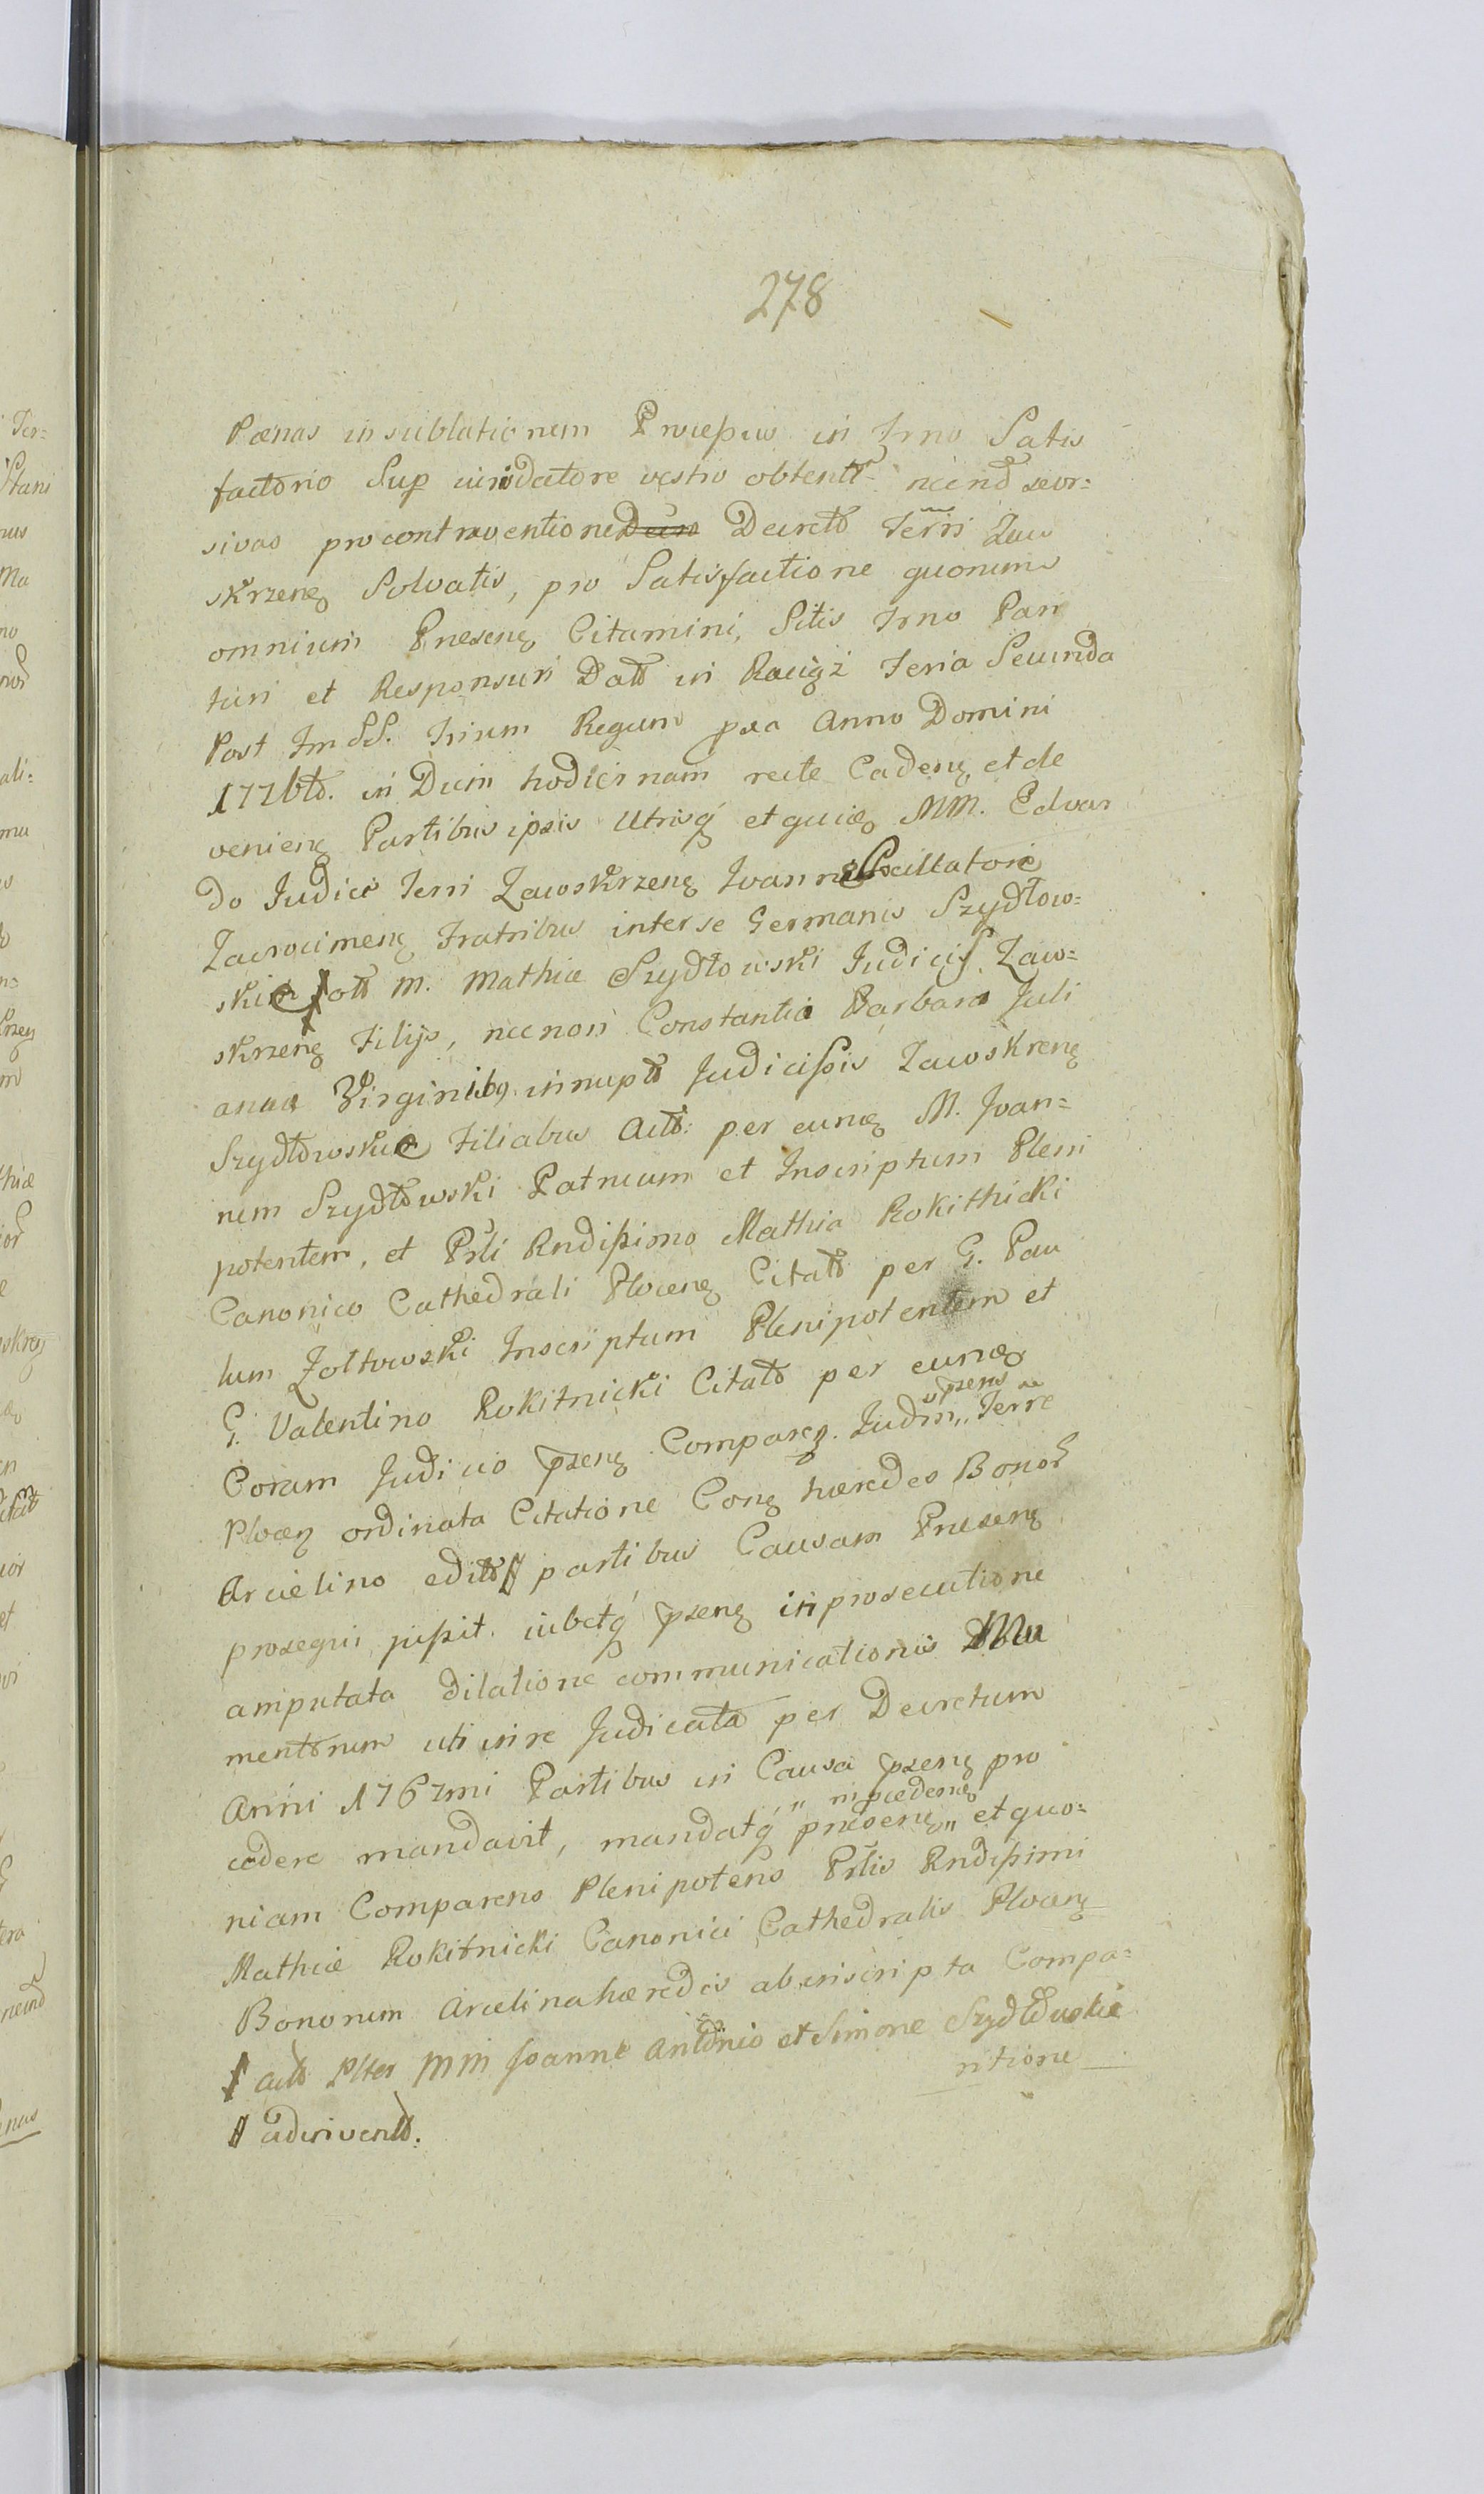 278
Pœnas in sublationem Processus in Trno Satis
factorio Sup inrodatore vestro obtentt necnd seor=
sivas pro contraventione Decretd Terri Zaw
skrzeng Solvatis, pro Satisfactione quorum
omnium Præseng Citamini, Sitis Trno Pari
turi et Responsuri Datt in Raciąż Feria Secunda
Post Fm SS. Trium Regum pxa Anno Domini
177btd. in Diem hodiernam recte Cadeng et de
venieng Partibus ipsis Utrisq́ et quiæ MM. Edvar
do Judici Terri Zawskrzeng Ioanne
Zacrocimeng Fratribus inter se Germanis Szydłow=
skie ott M. Mathiæ Szydłowski Judicis Zaw=
skrzeng Filijs, necnon Constantia Barbara Juli
anna Virginibq innuptt Judicissis Zawskreng
Szydłowskie Filiabus Actt: per eung M. Ioan=
nem Szydłowski Patruum et Inscriptum Pleni
potentem, et Prli Rndissimo Mathia Rokithicki
Canonico Cathedrali Ploceng Citatt per G. Pau
lum Zołtowski Inscriptum Plenipotentem et
G. Valentino Rokitnicki Citatt per eung
Coram Judicio pseng Compareng. Judm „pzens„ Terre
Ploceng ordinata Citatione Cong hæredes Bonor
Arcelino editt partibus Causam Præseng
prosequi jussit. iubetq́ pseng in prosecutione
amputata dilatione communicationis Mu
mentorum uti in re Judicata per Decretum
Anni 1767mi Partibus in Causa pseng pro
cedere mandavit, mandatq́ „in pcedeng præseng„ et quo=
niam Comparens Plenipotens Prlis Rndissimi
Mathiæ Rokitnicki Canonici Cathedralis Ploceng
Bonorum Arcelina hæredis ab inscripta Compa=
ritione
actt Pltes MM Joanne Antonio et Simone Szydłowskie
adinventt.